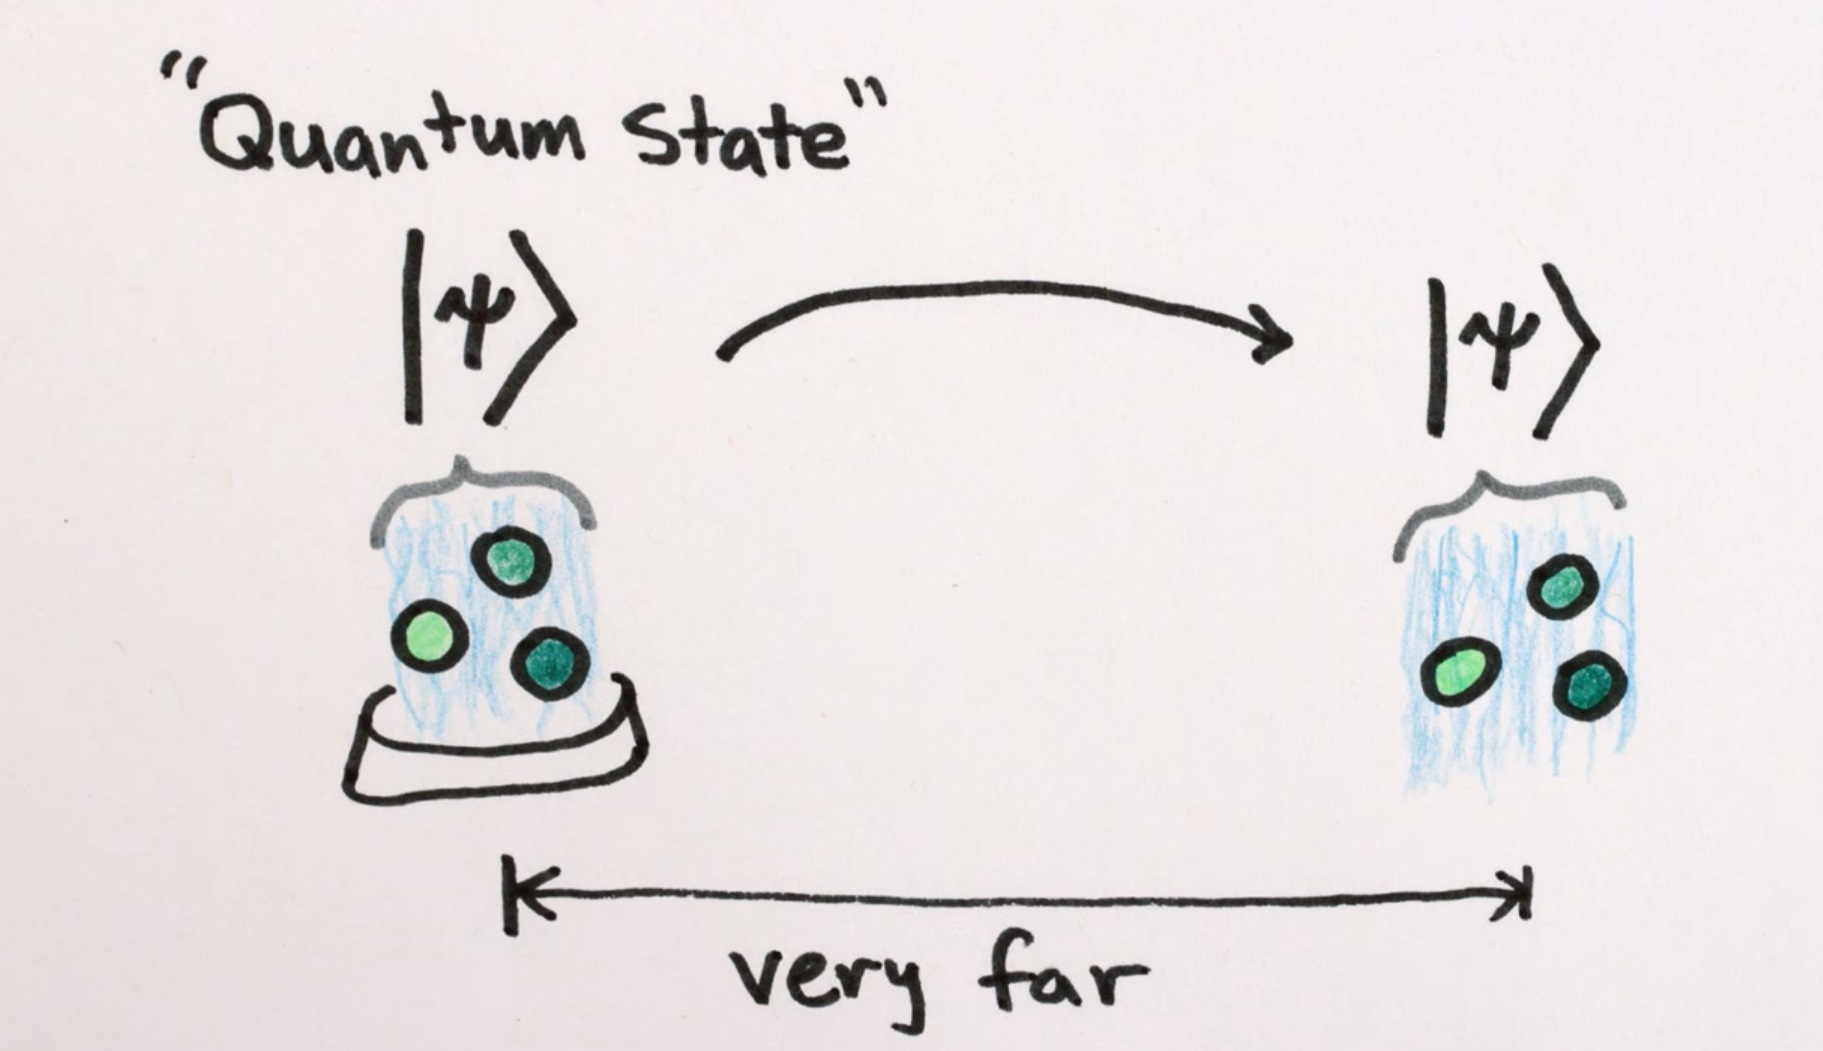 "Quantum State"
|ψ⟩ |ψ⟩
very far